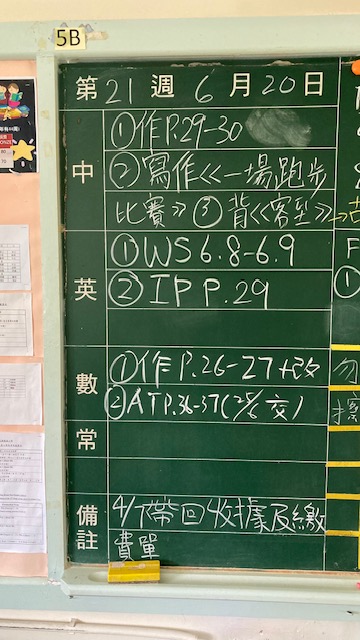 5B
第21週6月20日
中
①作P.29-30
②寫作<<一場跑步
比賽>> ③背<<客至>>
英
①WS 6.8-6.9
②IP P.29
數
①作P.26-27+改
②ATP.36-37(25/6交)
常
備註
4/7帶回收據及繳
費單
勿
擦